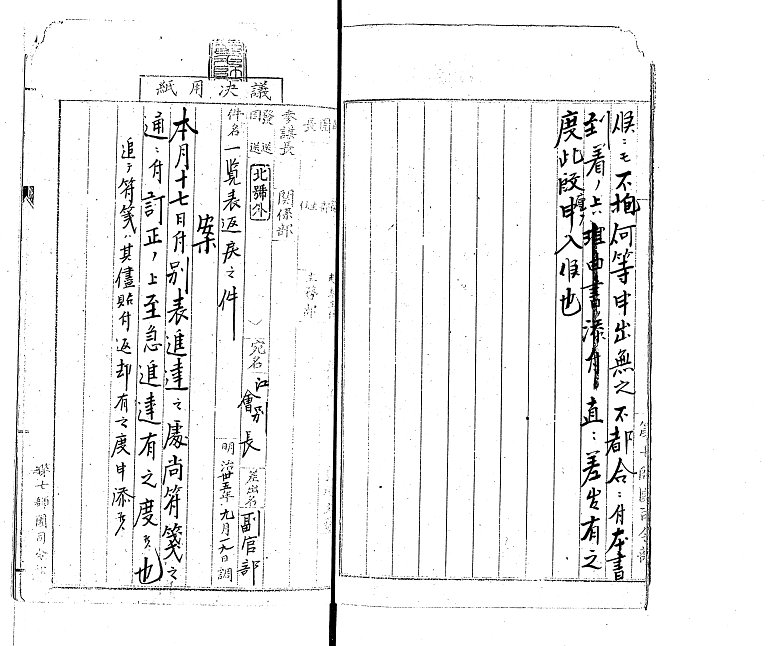 候ニモ不拘何等申出無之不都合ニ付本書
到着ノ上理由書添付直ニ差出有之
度此段申入候也
第七師團司令部
議決用紙
師團長
参謀長
関係部
主任
發送
回送
北號外
件名 一覧表返戻之件
宛名 江別 會長
差出名 副官部
明治卅五年九月一九日調
案
本月十七日付別表進達之處尚符箋之
通ニ付訂正ノ上至急進達有之度候也
追テ符箋ハ其儘貼付返却有之度申添候
第七師團司令部